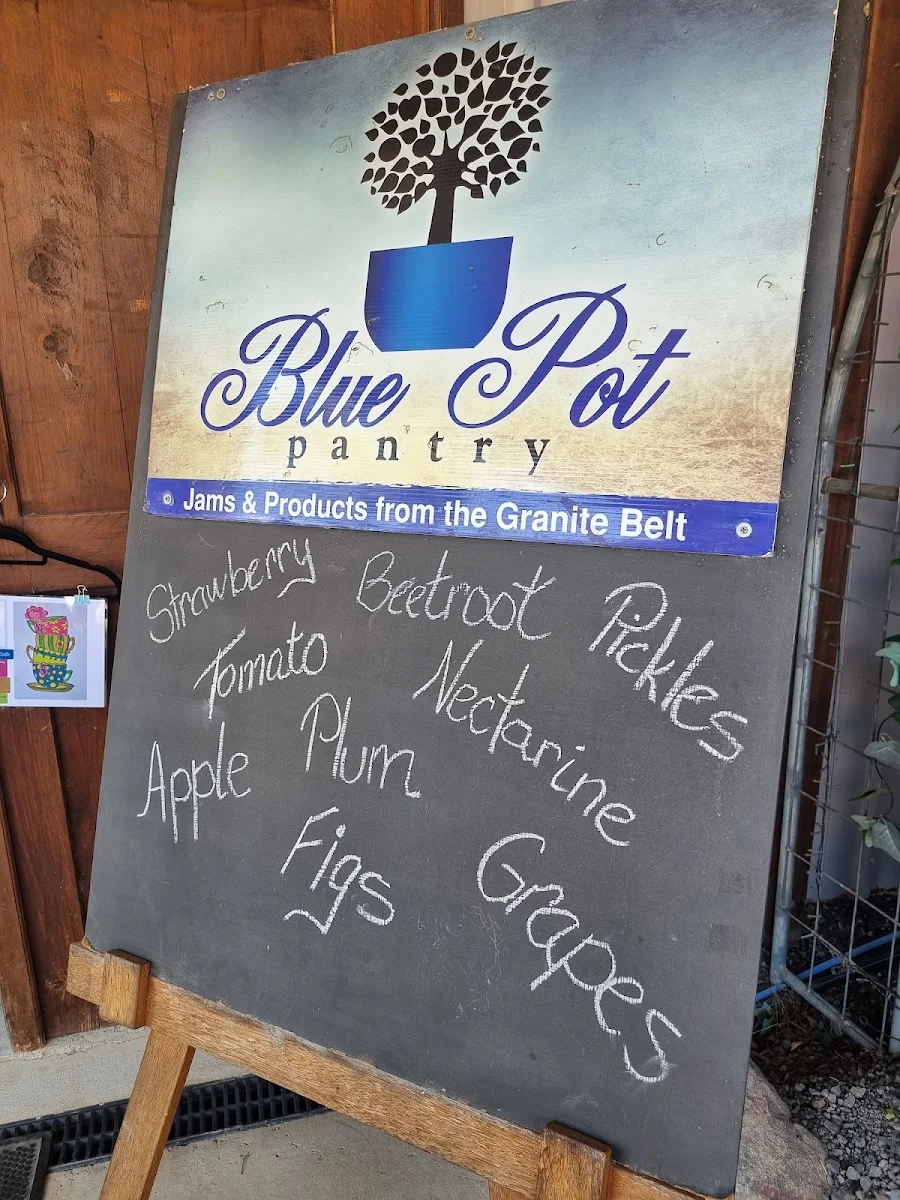 Blue Pot
pantry
Jams & Products from the Granite Belt
Strawberry
Beetroot
Pickles
Tomato
Nectarine
Apple
Plum
Figs
Grapes